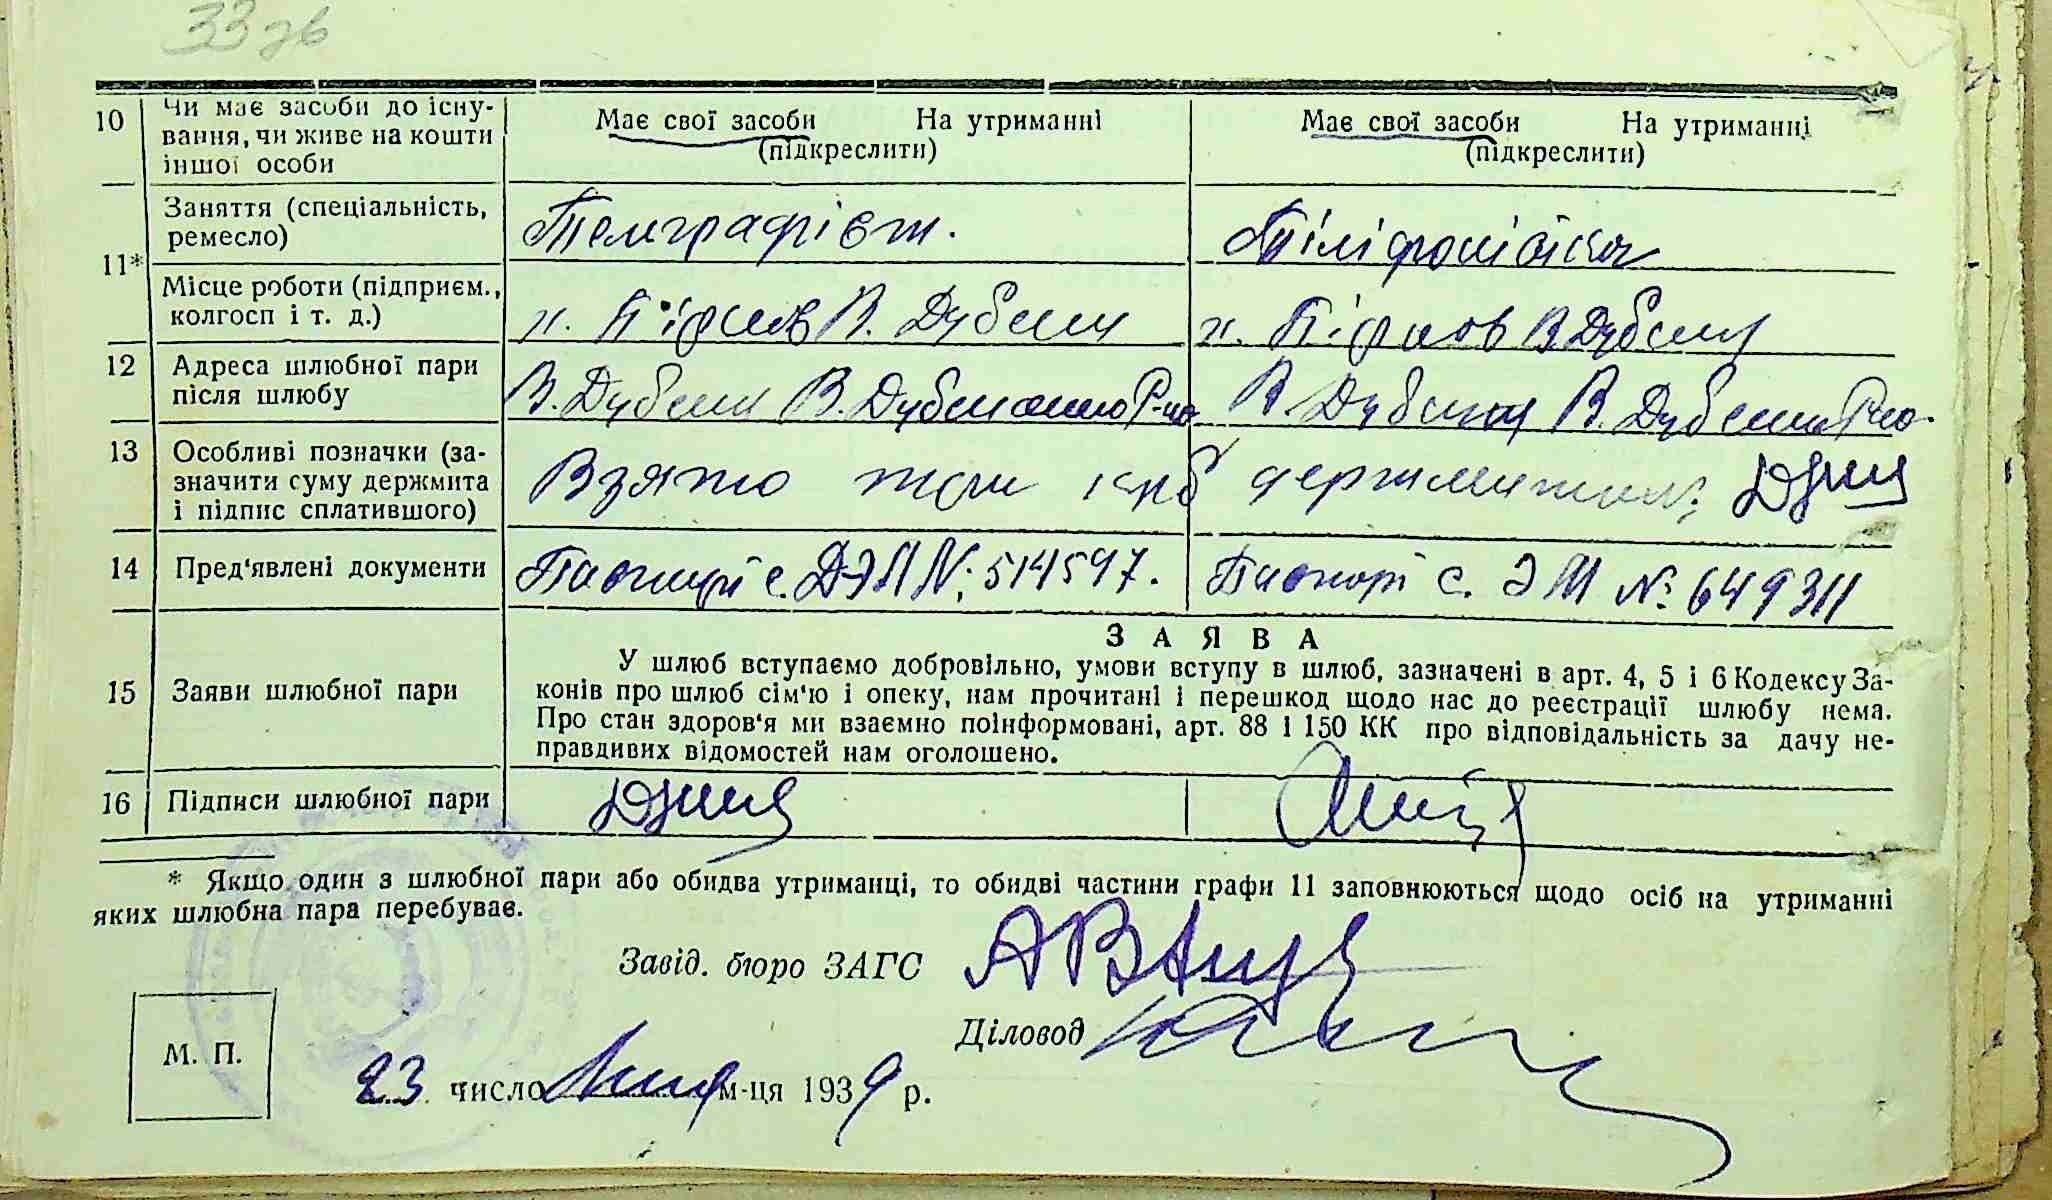 33 зв
10 Чи має засоби до існу-
вання, чи живе на кошти
іншої особи
Має свої засоби На утриманні
(підкреслити)
Має свої засоби На утриманні
(підкреслити)
11*
Заняття (спеціальність,
ремесло)
Телеграфіст.
Місце роботи (підприєм.,
колгосп і т. д.)
В. Дубечня
В. Дубечня
12 Адреса шлюбної пари
після шлюбу
В. Дубечня В. Р-на
В. Дубечня В.
13 Особливі позначки (за-
значити суму держмита
і підпис сплатившого)
Взято три крб держмита
14 Пред'явлені документи
Паспорт с. ДЭП №: 514597.
Паспорт с. ЭМ №: 649311
15 Заяви шлюбної пари
ЗАЯВА
У шлюб вступаємо добровільно, умови вступу в шлюб, зазначені в арт. 4, 5 і 6 Кодексу За-
конів про шлюб сім'ю і опеку, нам прочитані і перешкод щодо нас до реєстрації шлюбу нема.
Про стан здоров'я ми взаємно поінформовані, арт. 88 і 150 КК про відповідальність за дачу не-
правдивих відомостей нам оголошено.
16 Підписи шлюбної пари
* Якщо один з шлюбної пари або обидва утриманці, то обидві частини графи 11 заповнюються щодо осіб на утриманні
яких шлюбна пара перебуває.
Завід. бюро ЗАГС
Діловод
М. П.
23 число м-ця 1939 р.